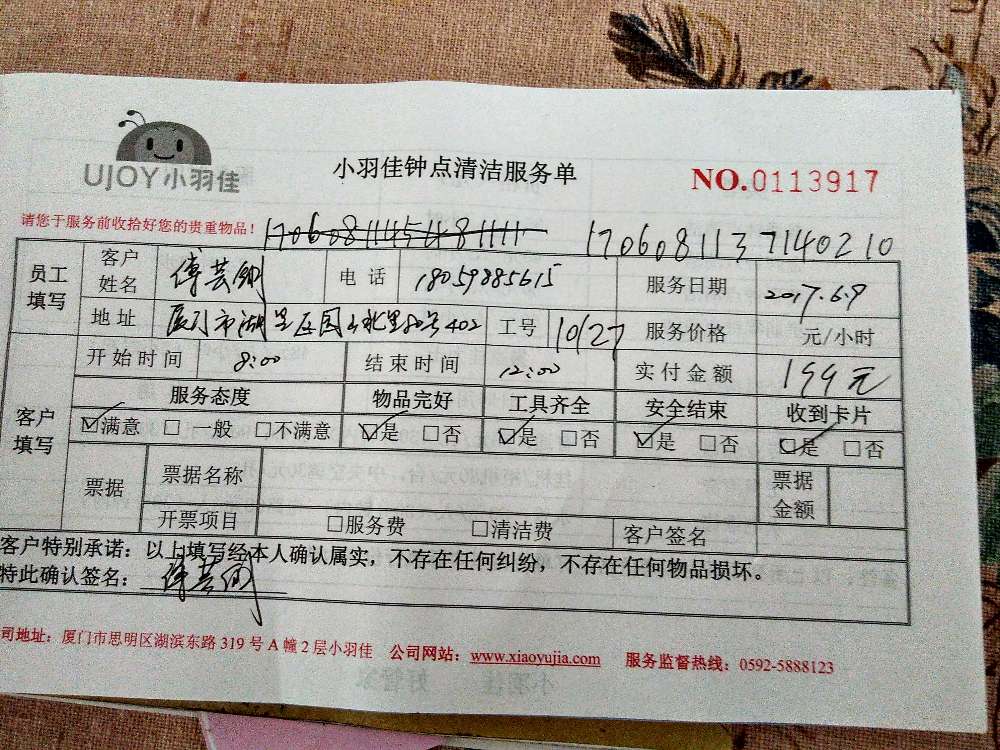 UJOY小羽佳
小羽佳钟点清洁服务单
NO.0113917
请您于服务前收拾好您的贵重物品！
1706081145481111 1706081137140210
员工填写 客户姓名 傅芸 电话 18059885615 服务日期 2017.6.9
地址 厦门市湖里区园山北里80号402 工号 10127 服务价格 元/小时
开始时间 8:00 结束时间 12:00 实付金额 199元
客户填写 服务态度 物品完好 工具齐全 安全结束 收到卡片
☑满意 □一般 □不满意 ☑是 □否 ☑是 □否 ☑是 □否 ☑是 □否
票据 票据名称 票据金额
开票项目 □服务费 □清洁费 客户签名
客户特别承诺：以上填写经本人确认属实，不存在任何纠纷，不存在任何物品损坏。
特此确认签名： 傅芸
司地址：厦门市思明区湖滨东路 319 号 A 幢 2 层小羽佳 公司网站：www.xiaoyujia.com 服务监督热线：0592-5888123